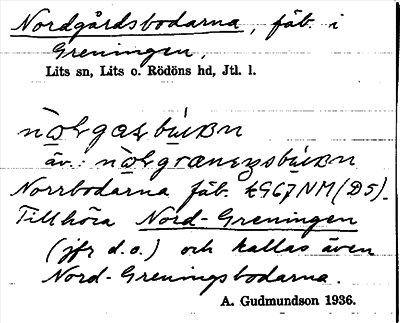 Nordgårdsbodarna, fäb. i
Greningen,
Lits sn, Lits o. Rödöns hd, Jtl. l.
äv.:
Norrbodarna fäb. (D5).
Tillhöra Nord-Greningen
(jfr d.o.) och kallas även
Nord-Greningsbodarna.
A. Gudmundson 1936.